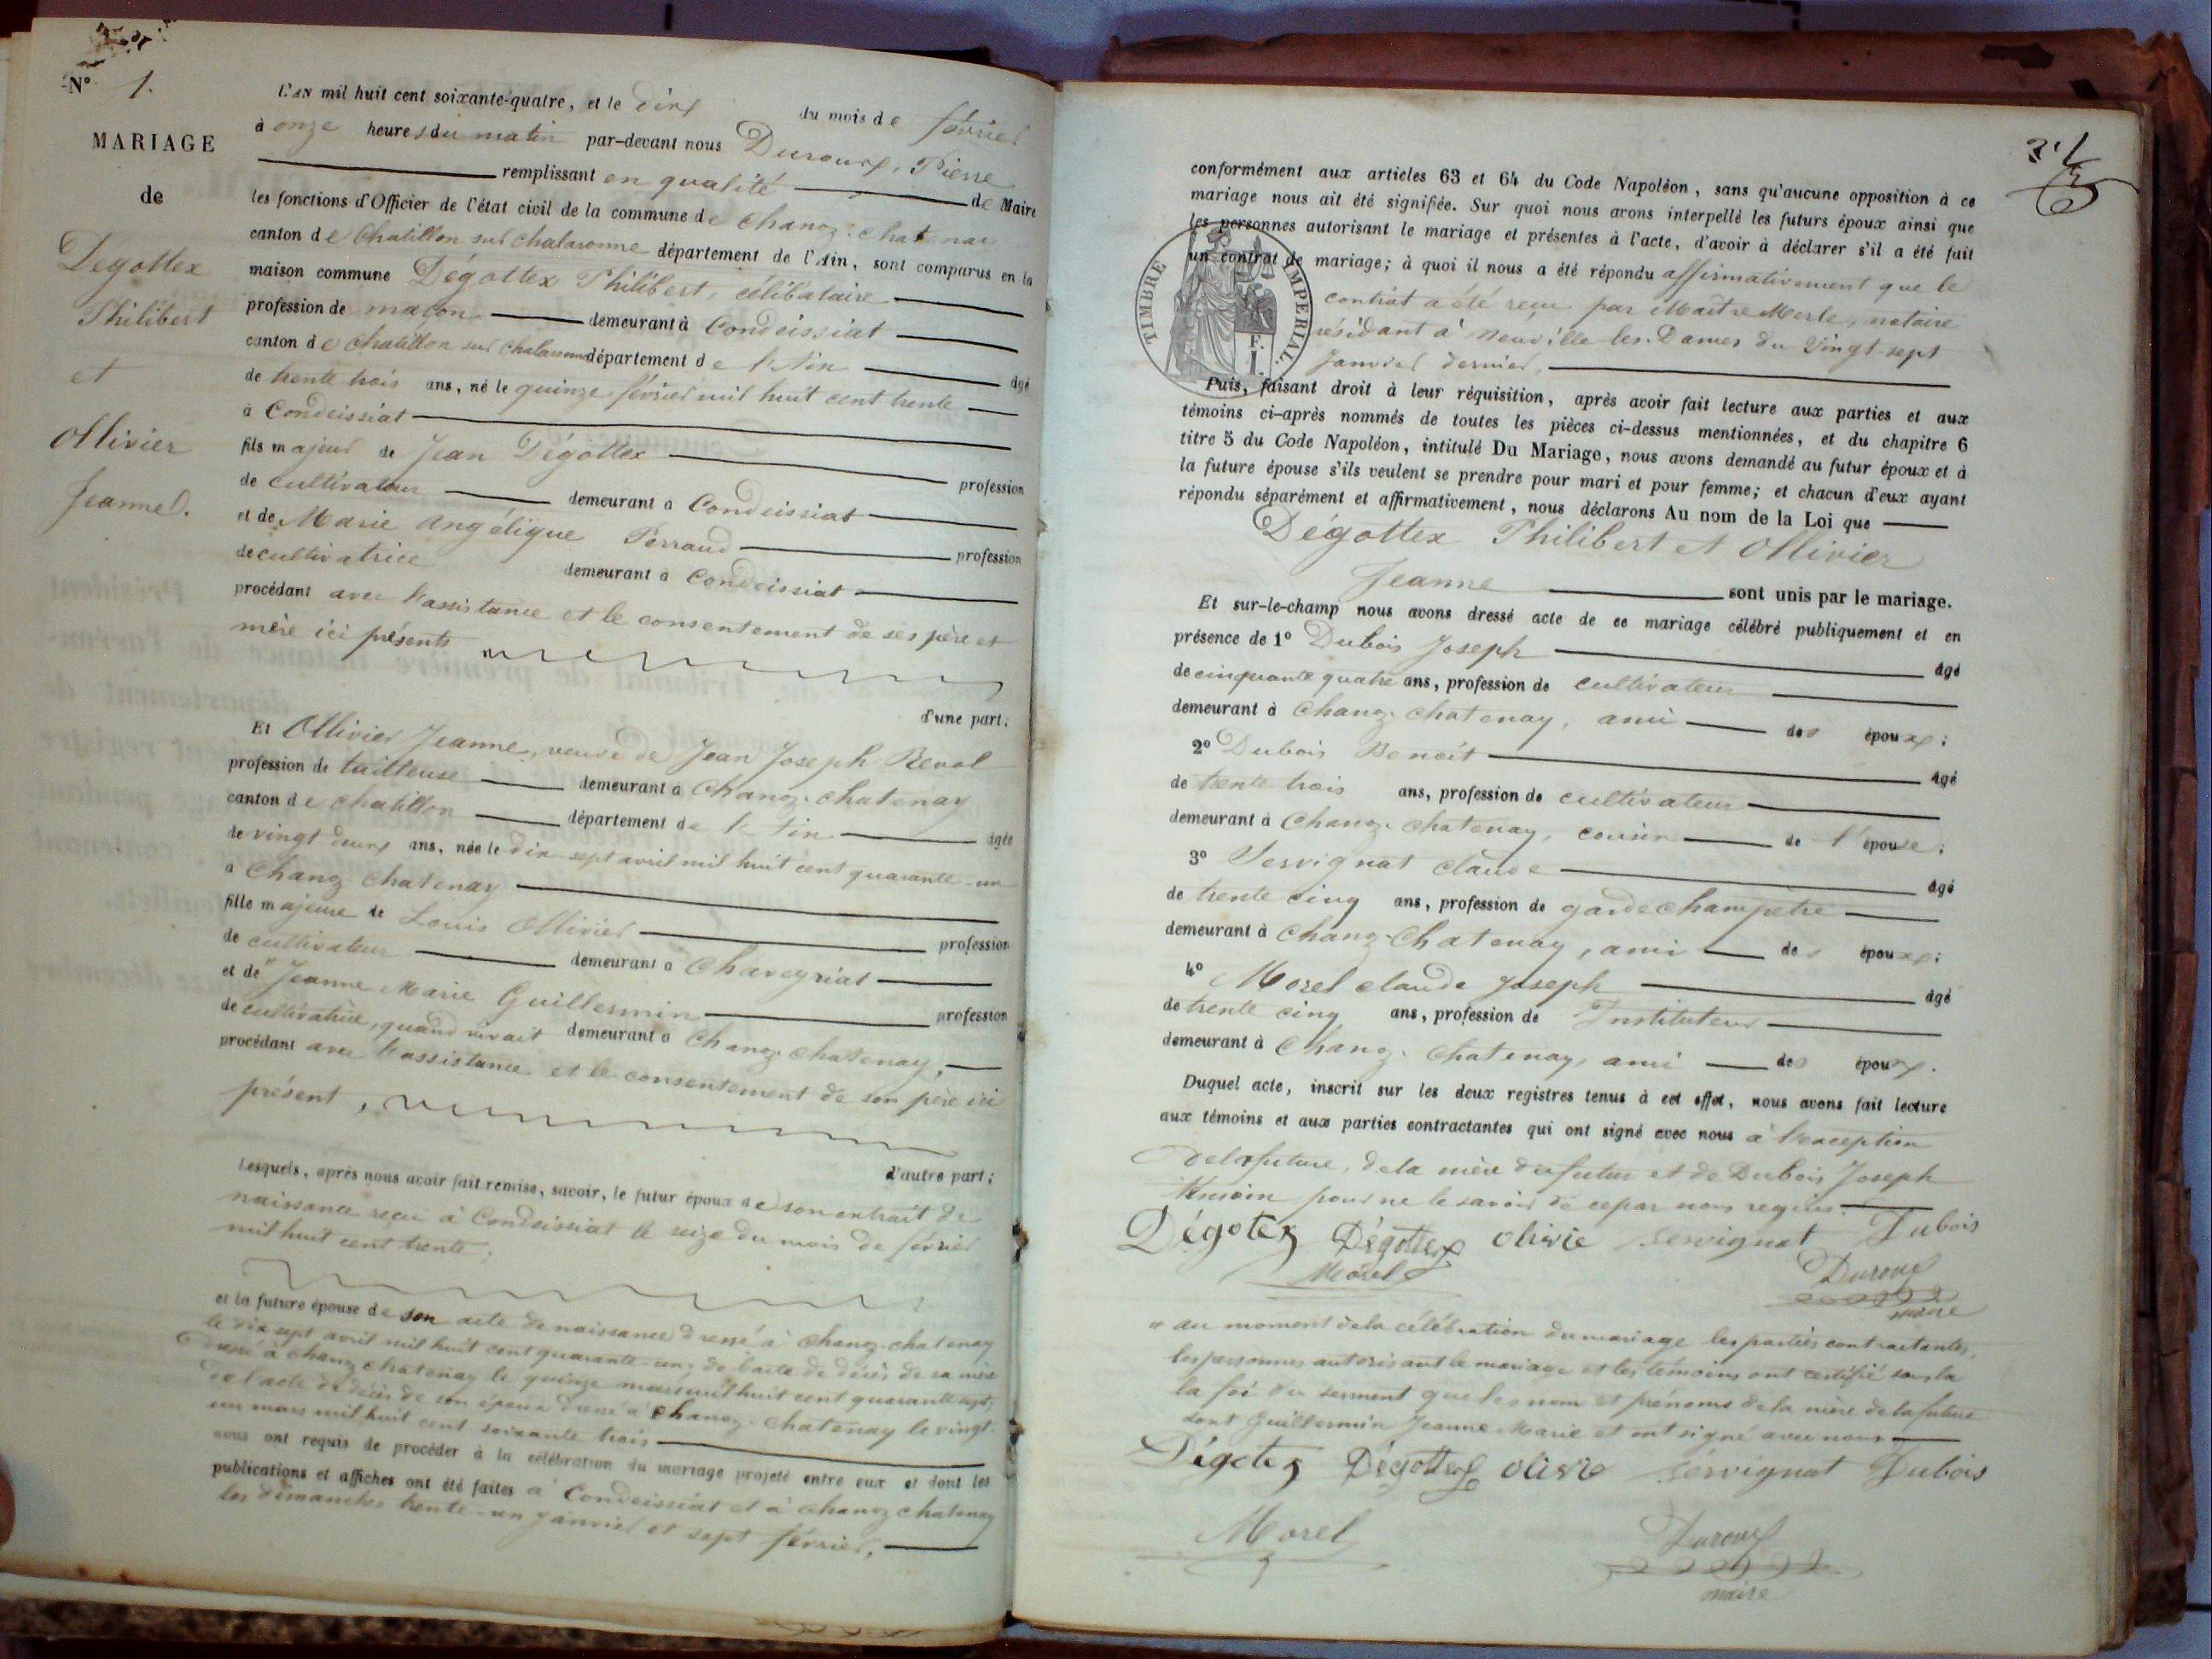 N° 1.
MARIAGE
de
Dégottex
Philibert
et
Ollivier
Jeanne.
L'AN mil huit cent soixante-quatre, et le dix du mois de février
à onze heures du matin par-devant nous Duroux, Pierre
remplissant en qualité de Maire
les fonctions d'Officier de l'état civil de la commune de Chanoz-Chatenay
canton de Chatillon sur chalaronne département de l'Ain, sont comparus en la
maison commune Dégottex Philibert, célibataire
profession de maçon demeurant à Condeissiat
canton de Chatillon sur Chalaronne département de l'Ain âgé
de trente trois ans, né le quinze février mil huit cent trente
à Condeissiat
fils majeur de Jean Dégottex profession
de cultivateur demeurant à Condeissiat
et de Marie Angélique Perraud profession
de cultivatrice demeurant à Condeissiat
procédant avec l'assistance et le consentement de ses père et
mère ici présents
d'une part;
Et Ollivier Jeanne, veuve de Jean Joseph Revol
profession de tailleuse demeurant à Chanoz-chatenay
canton de chatillon département de l'Ain âgée
de vingt deux ans, née le dix-sept avril mil huit cent quarante-un
à Chanoz chatenay
fille majeure de Louis Ollivier profession
de cultivateur demeurant à Chaveyriat
et de " Jeanne Marie Guillermin profession
de cultivatrice, quand vivait demeurant à Chanoz chatenay,
procédant avec l'assistance et le consentement de son père ici
présent,
d'autre part;
Lesquels, après nous avoir fait remise, savoir, le futur époux de son extrait de
naissance reçu à Condeissiat le seize du mois de février
mil huit cent trente;
et la future épouse de son acte de naissance dressé à Chanoz-chatenay
le dix sept avril mil huit cent quarante-un; de l'acte de décès de sa mère
dressé à chanoz chatenay le quinze mars mil huit cent quarante sept;
de l'acte de décès de son époux dressé à Chanoz-Chatenay le vingt-
un mars mil huit cent soixante trois
nous ont requis de procéder à la célébration du mariage projeté entre eux et dont les
publications et affiches ont été faites à Condeissiat et à chanoz chatenay
les dimanches trente-un janvier et sept février,
conformément aux articles 63 et 64 du Code Napoléon, sans qu'aucune opposition à ce
mariage nous ait été signifiée. Sur quoi nous avons interpellé les futurs époux ainsi que
les personnes autorisant le mariage et présentes à l'acte, d'avoir à déclarer s'il a été fait
un contrat de mariage; à quoi il nous a été répondu affirmativement que le
contrat a été reçu par Maître Merle, notaire
résidant à Neuville-les-Dames du vingt-sept
janvier dernier,
TIMBRE IMPERIAL.
Puis, faisant droit à leur réquisition, après avoir fait lecture aux parties et aux
témoins ci-après nommés de toutes les pièces ci-dessus mentionnées, et du chapitre 6
titre 5 du Code Napoléon, intitulé Du Mariage, nous avons demandé au futur époux et à
la future épouse s'ils veulent se prendre pour mari et pour femme; et chacun d'eux ayant
répondu séparément et affirmativement, nous déclarons Au nom de la Loi que
Dégottex Philibert et Ollivier
Jeanne sont unis par le mariage.
Et sur-le-champ nous avons dressé acte de ce mariage célébré publiquement et en
présence de 1° Dubois Joseph âgé
de cinquante quatre ans, profession de cultivateur
demeurant à Chanoz-chatenay, ami des époux;
2° Dubois Benoît âgé
de trente trois ans, profession de cultivateur
demeurant à Chanoz-chatenay, cousin de l'épouse;
3° Servignat claude âgé
de trente cinq ans, profession de garde champêtre
demeurant à Chanoz-Chatenay, ami des époux;
4° Morel claude Joseph âgé
de trente cinq ans, profession de Instituteur
demeurant à Chanoz-Chatenay, ami des époux.
Duquel acte, inscrit sur les deux registres tenus à cet effet, nous avons fait lecture
aux témoins et aux parties contractantes qui ont signé avec nous à l'exception
de la future, de la mère du futur et de Dubois Joseph
témoin pour ne le savoir de ce par nous requis.
Dégotex Dégottex olivie servignat Dubois
Morel Duroux
maire
" au moment de la célébration du mariage les parties contractantes,
les personnes autorisant le mariage et les témoins ont certifié sous la
la foi du serment que les nom et prénoms de la mère de la future
sont Guillermin Jeanne Marie et ont signé avec nous
Dégotex Dégottex olivie servignat Dubois
Morel Duroux
maire